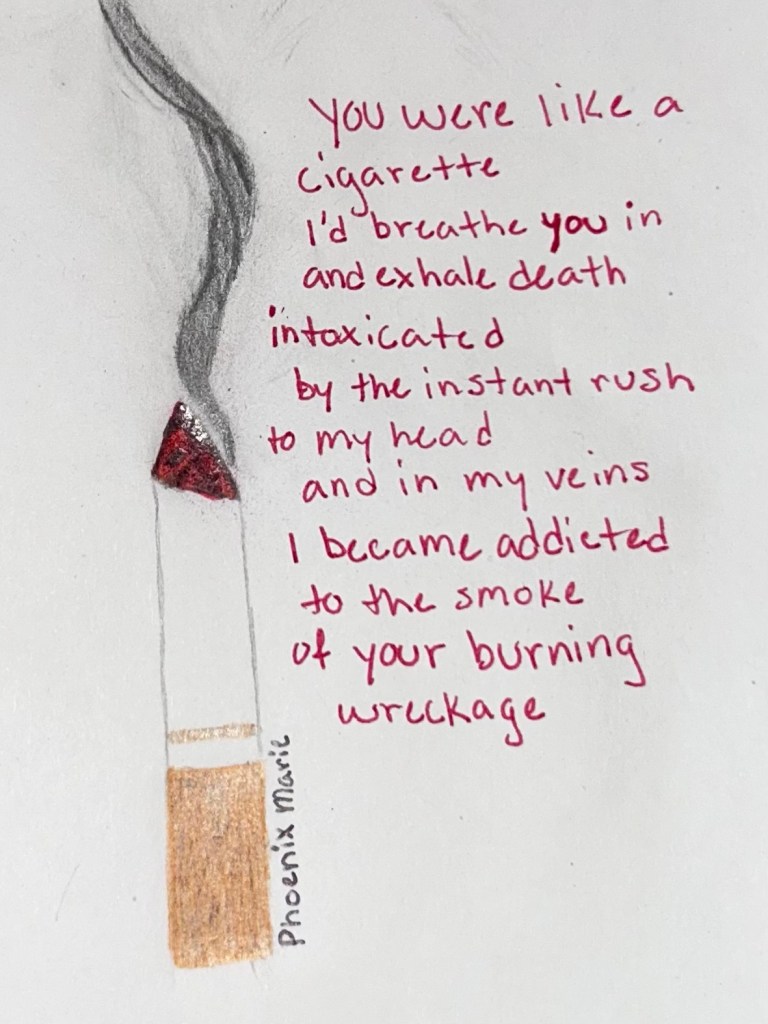 You were like a
cigarette
I'd breathe you in
and exhale death
intoxicated
by the instant rush
to my head
and in my veins
I became addicted
to the smoke
of your burning
wreckage
Phoenix Marie